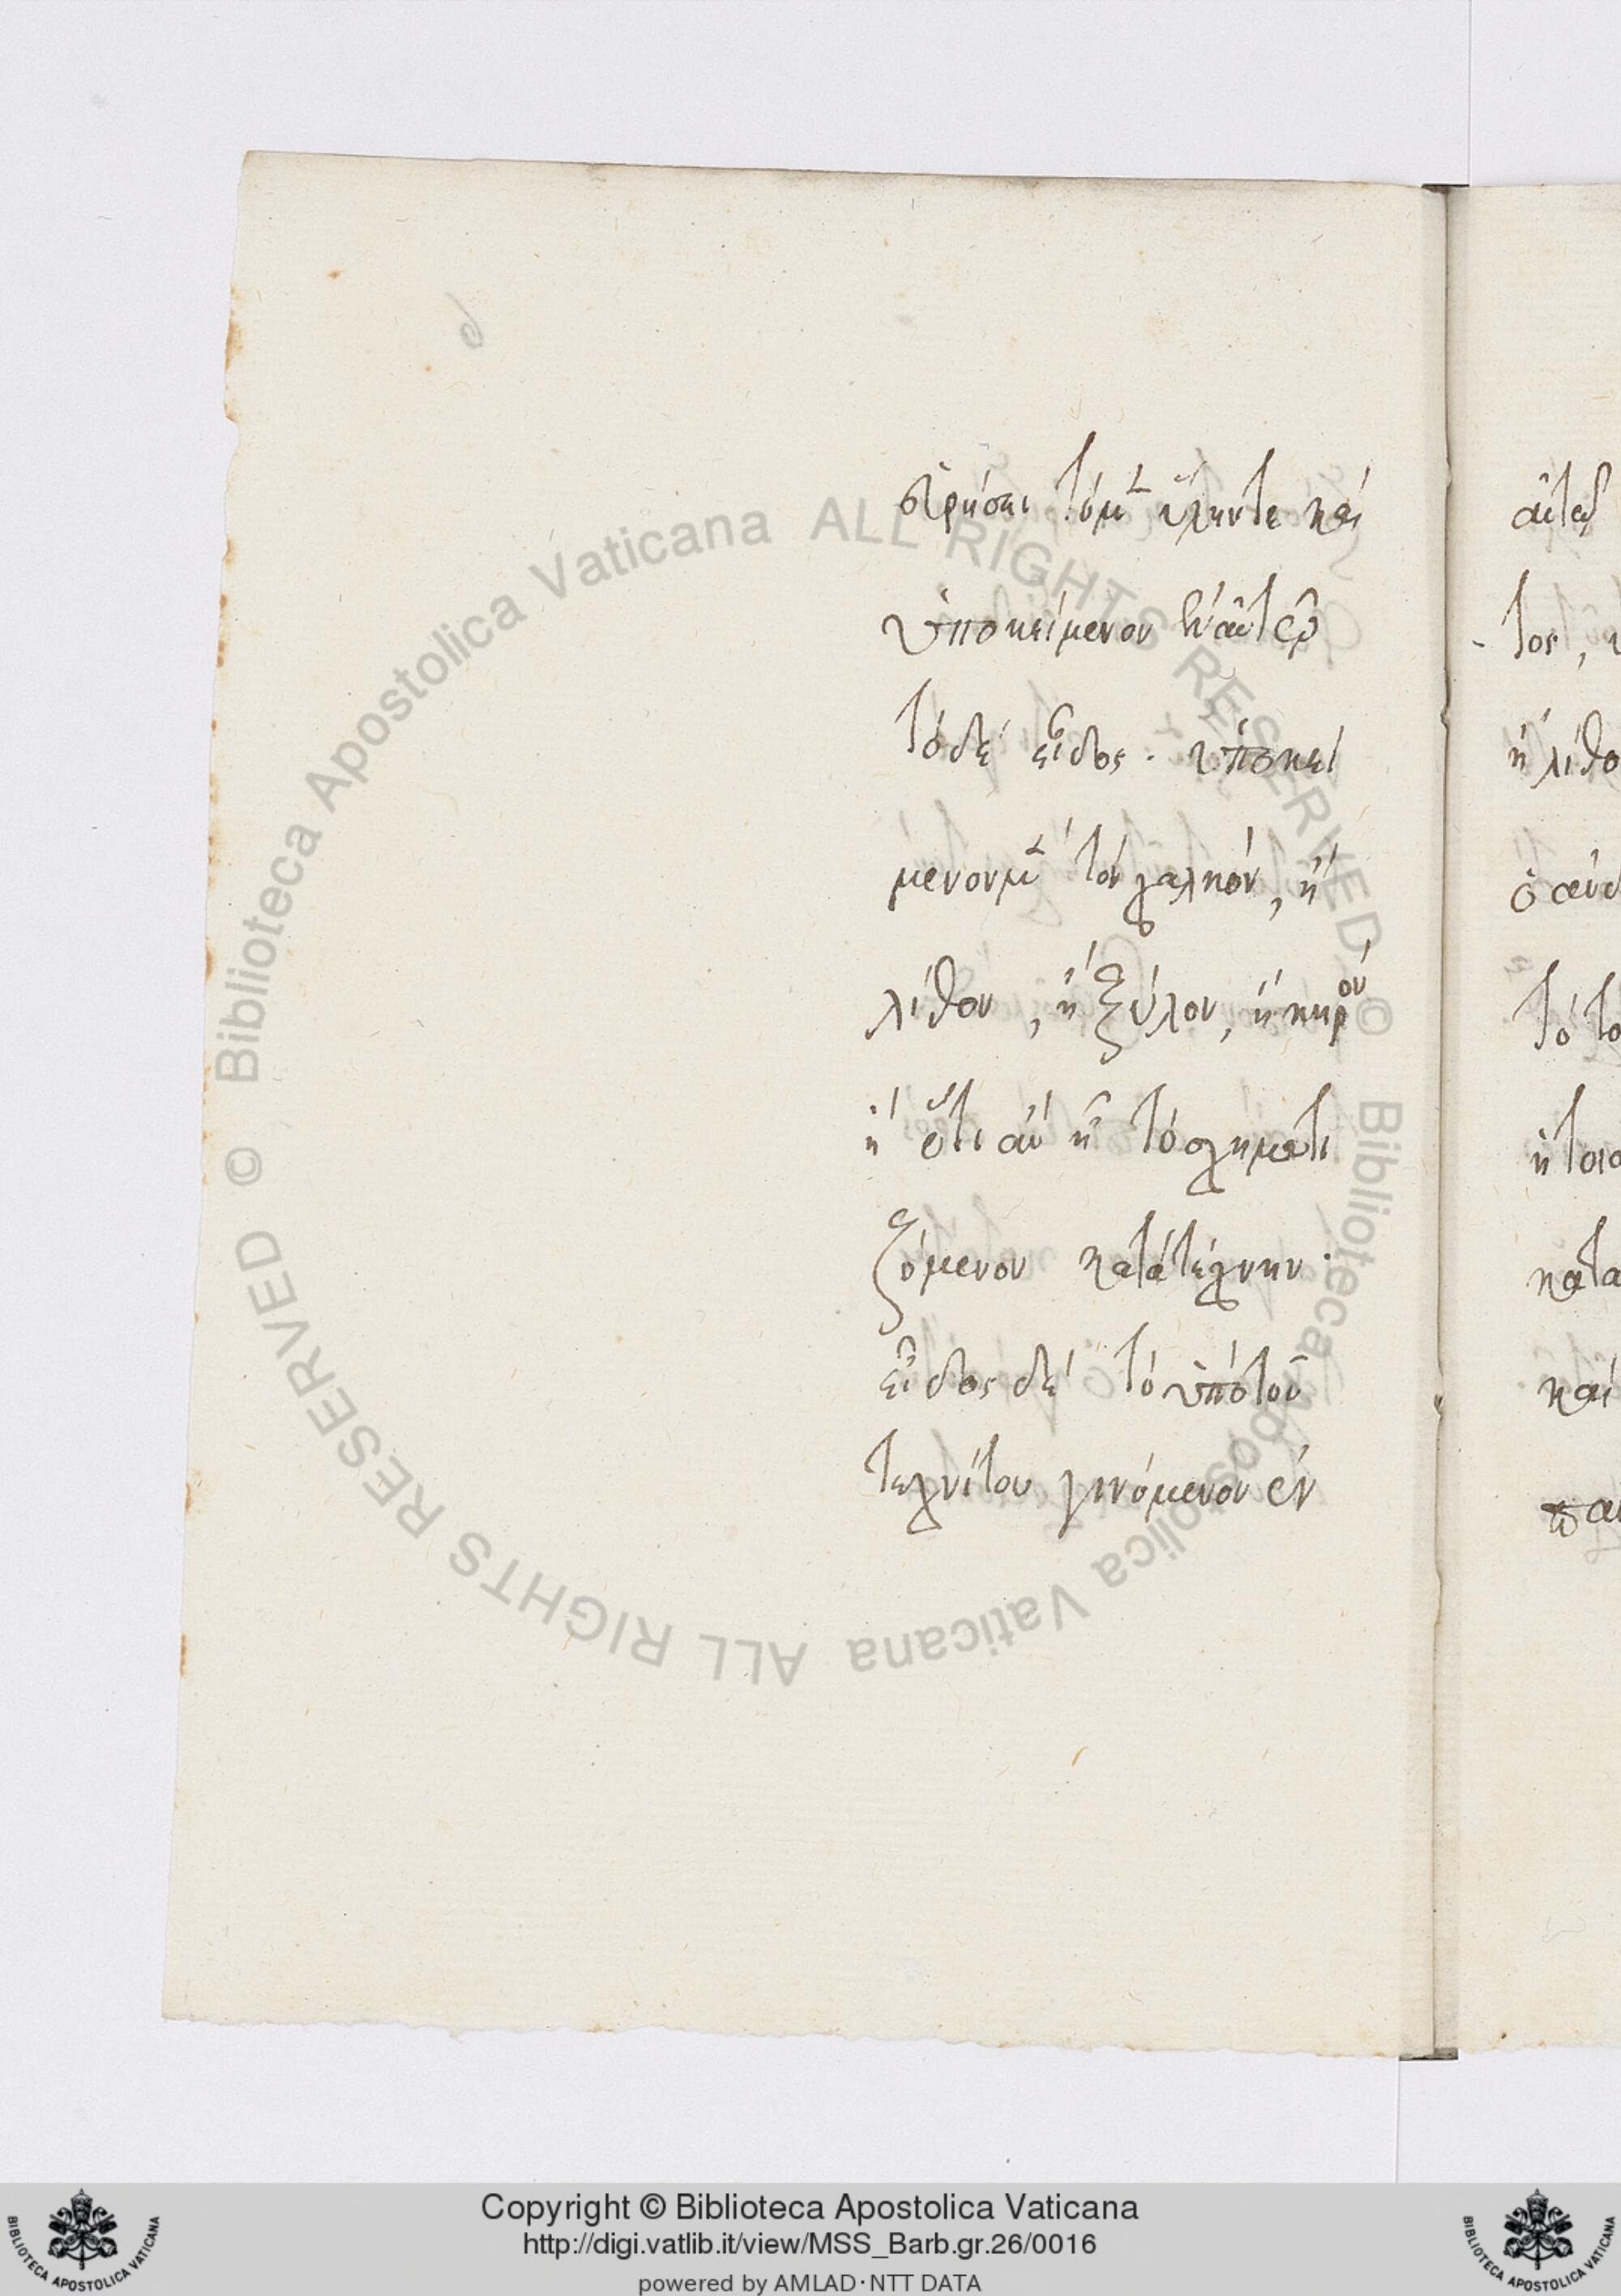 στρῆσαι τὸ μ̂ ὕλην τε καὶ
ὑποκείμενον ἐν αὐτῷ
τὸ δὲ εἶδος. ὑποκεί
μενον μ̂ τὸν χαλκὸν, ἢ
λίθον, ἢ ξύλον, ἢ κηρὸν
ἢ ὅτι ἂν ᾖ τὸ σχηματι
ζόμενον κατὰ τέχνην.
εἶδος δὲ τὸ ὑπὸ τοῦ
τεχνίτου γινόμενον ἐν
τος,
ἢ λίθο
ὁ ἀνδ
τὸ το
ἢ τοιο
κατα
καὶ
παι
© Biblioteca Apostolica Vaticana ALL RIGHTS RESERVED © Biblioteca Apostolica Vaticana ALL RIGHTS RESERVED
Copyright © Biblioteca Apostolica Vaticana
http://digi.vatlib.it/view/MSS_Barb.gr.26/0016
powered by AMLAD·NTT DATA
BIBLIOTECA APOSTOLICA VATICANA
BIBLIOTECA APOSTOLICA VATICANA